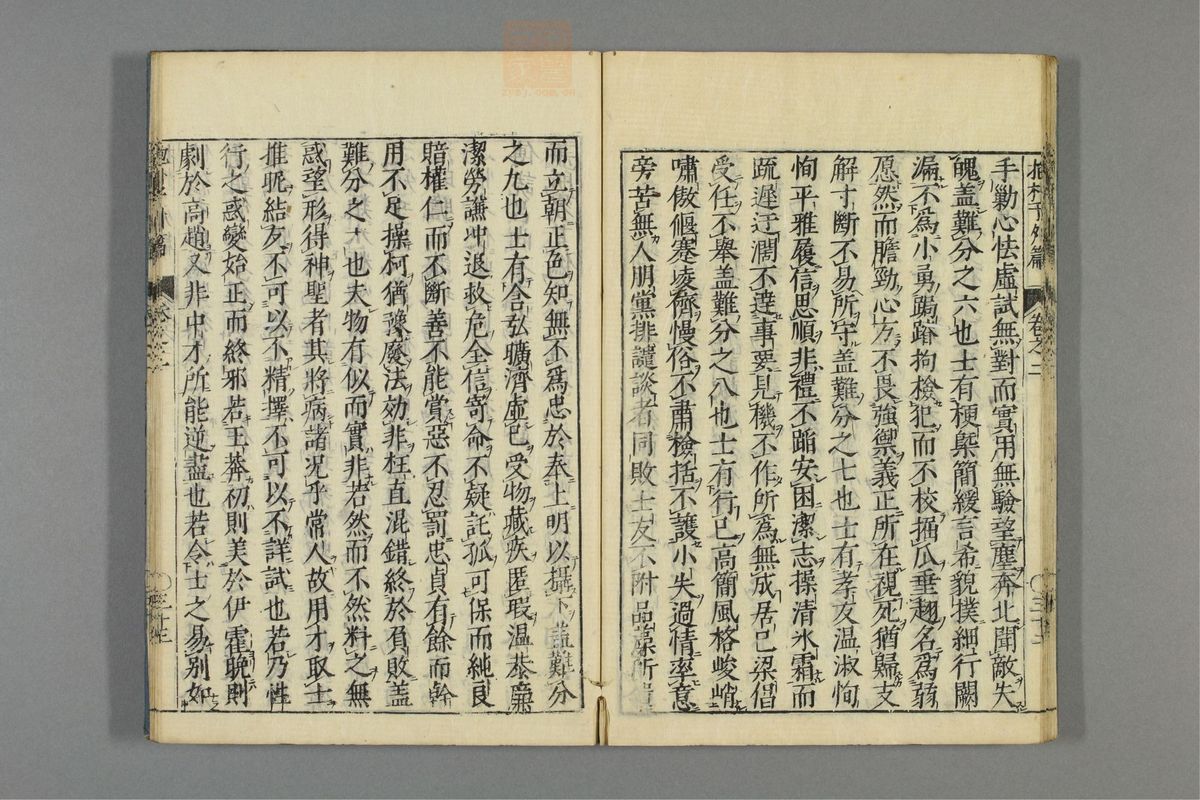 抱朴子外篇 卷之二
手勦心怯虛試無對而實用無驗望塵奔北聞敵失
魄盖難分之六也士有梗槩簡緩言希貌撲細行闕
漏不爲小勇跼蹐拘檢犯而不校握爪垂翅名爲弱
愿然而膽勁心方不畏強禦義正所在視死猶歸支
解寸斷不易所守盖難分之七也士有孝友温淑恂
恂平雅履信思順非禮不蹈安困潔志操清氷霜而
疏遲迂濶不達事要見機不作所爲無成居巳梁倡
受任不舉盖難分之八也士有行巳高簡風格峻峭
嘯傲偃蹇凌儕慢俗不肅檢括不護小失適情率意
旁若無人朋黨排譴談者同敗士友不附品藻所遺
而立朝正色知無不爲忠於奉上明以攝下盖難分
之九也士有含弘曠濟虛巳受物藏疾匿瑕温恭廉
潔勞謙冲退救危全信寄命不疑託孤可保而純良
暗權仁而不斷善不能賞惡不忍罰忠貞有餘而幹
用不足操柯猶豫廢法効非枉直混錯終於負敗盖
難分之十也夫物有似而實非若然而不然料之無
惑望形得神聖者其將病諸况乎常人故用才取士
推昵結友不可以不精擇不可以不詳試也若乃性
行之惑變始正而終邪若王莽初則美於伊霍晚則
劇於高趙又非中才所能逆盡也若令士之易別如